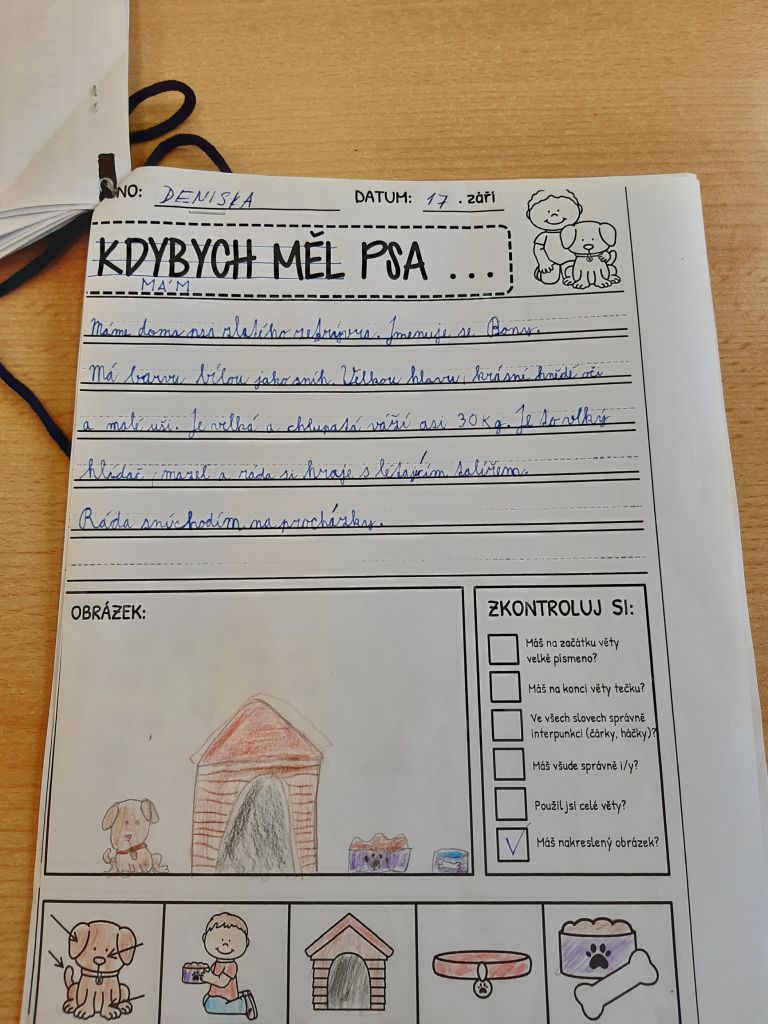 NO: DENISKA DATUM: 17. září
KDYBYCH MĚL PSA ...
MÁM
Máme doma psa zlatého retrávra. Jmenuje se Bony.
Má barvu bílou jako sníh. Velkou hlavu, krásní hnědé oči
a malé uši. Je velká a chlupatá váží asi 30 kg. Je to velký
hlídač, mazel a ráda si hraje s létajícím talířem.
Ráda sníchodím na procházky.
OBRÁZEK:
ZKONTROLUJ SI:
Máš na začátku věty
velké písmeno?
Máš na konci věty tečku?
Ve všech slovech správně
interpunkci (čárky, háčky)?
Máš všude správně i/y?
Použil jsi celé věty?
Máš nakreslený obrázek?